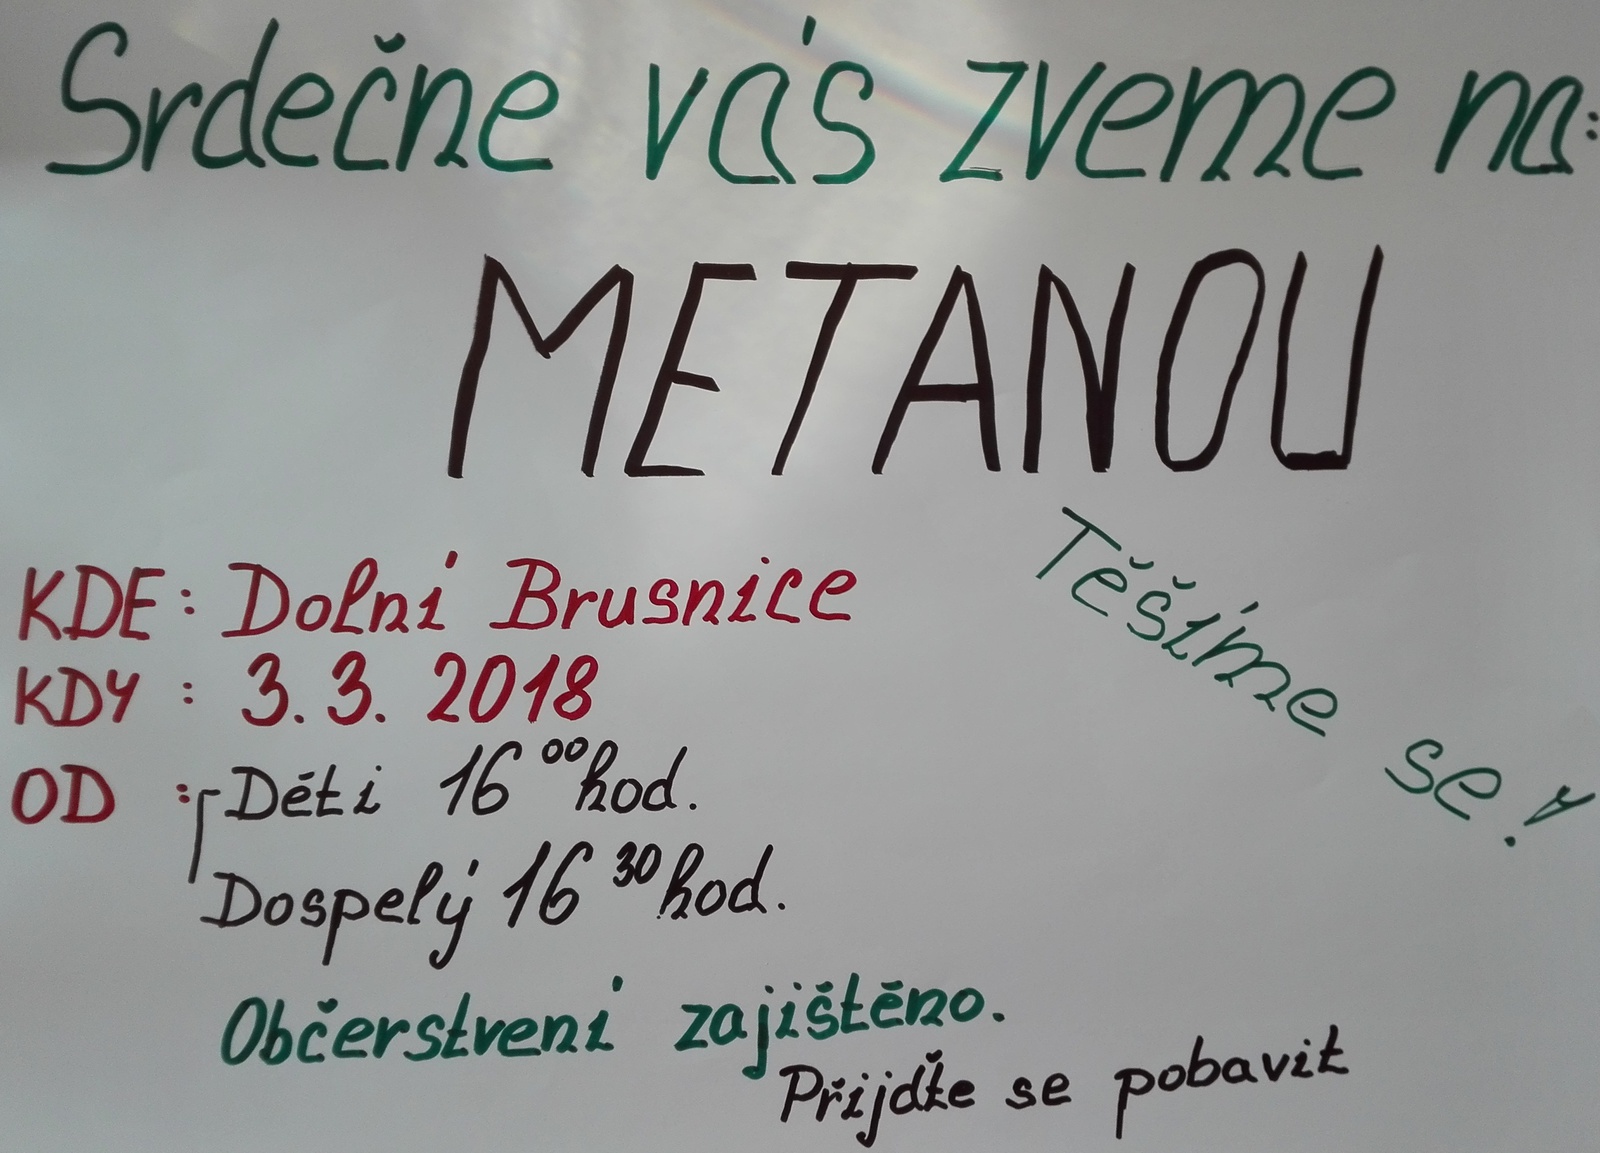 Srdečne vás zveme na:
METANOU
KDE: Dolní Brusnice
KDY: 3.3. 2018
OD: Děti 16 00 hod.
Dospelý 16 30 hod.
Těšíme se!
Občerstvení zajištěno.
Přijďte se pobavit